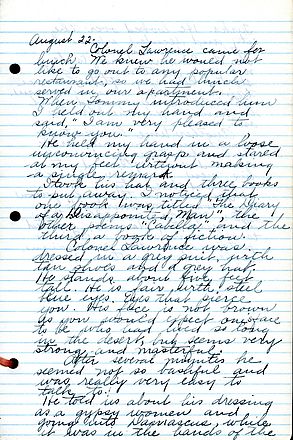 August 22.
Colonel Lawrence came for
lunch. We knew he would not
like to go out to any popular
restaurant, so we had lunch
served in our apartment.
When Tommy introduced him
I held out my hand and
said, "I am very pleased to
know you."
He held my hand in a loose
unconvincing grasp and stared
at my feet without making
a single remark.
I took his hat and three books
to put away. I noticed that
one book was titled "The Diary
of a Disappointed Man", the
other poems "Cabella" and the
third a book of fiction.
Colonel Lawrence was
dressed in a grey suit, with
tan shoes and a grey hat.
He stands about five feet
tall. He is fair with steel
blue eyes. Eyes that pierce
you. His face is not brown
as you would expect one's face
to be who had lived so long
in the desert, but seems very
strong and masterful.
After several minutes he
seemed not so bashful and
was really very easy to
talk to.
He told us about his dressing
as a gypsy women and
going into Damascus, while
it was in the hands of the